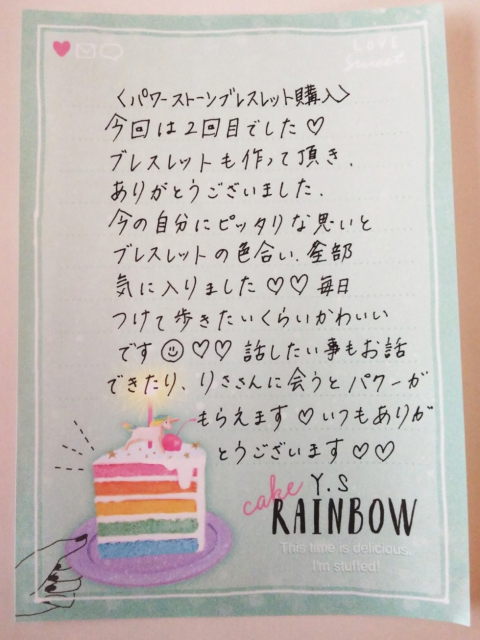 LOVE
Sweet
〈パワーストーンブレスレット購入〉
今回は2回目でした♡
ブレスレットも作って頂き、
ありがとうございました。
今の自分にピッタリな思いと
ブレスレットの色合い、全部
気に入りました♡♡毎日
つけて歩きたいくらいかわいい
です☺♡♡話したい事もお話
できたり、りささんに会うとパワーが
もらえます♡いつもありが
とうございます♡♡
Y.S
cake
RAINBOW
This time is delicious.
I'm stuffed!